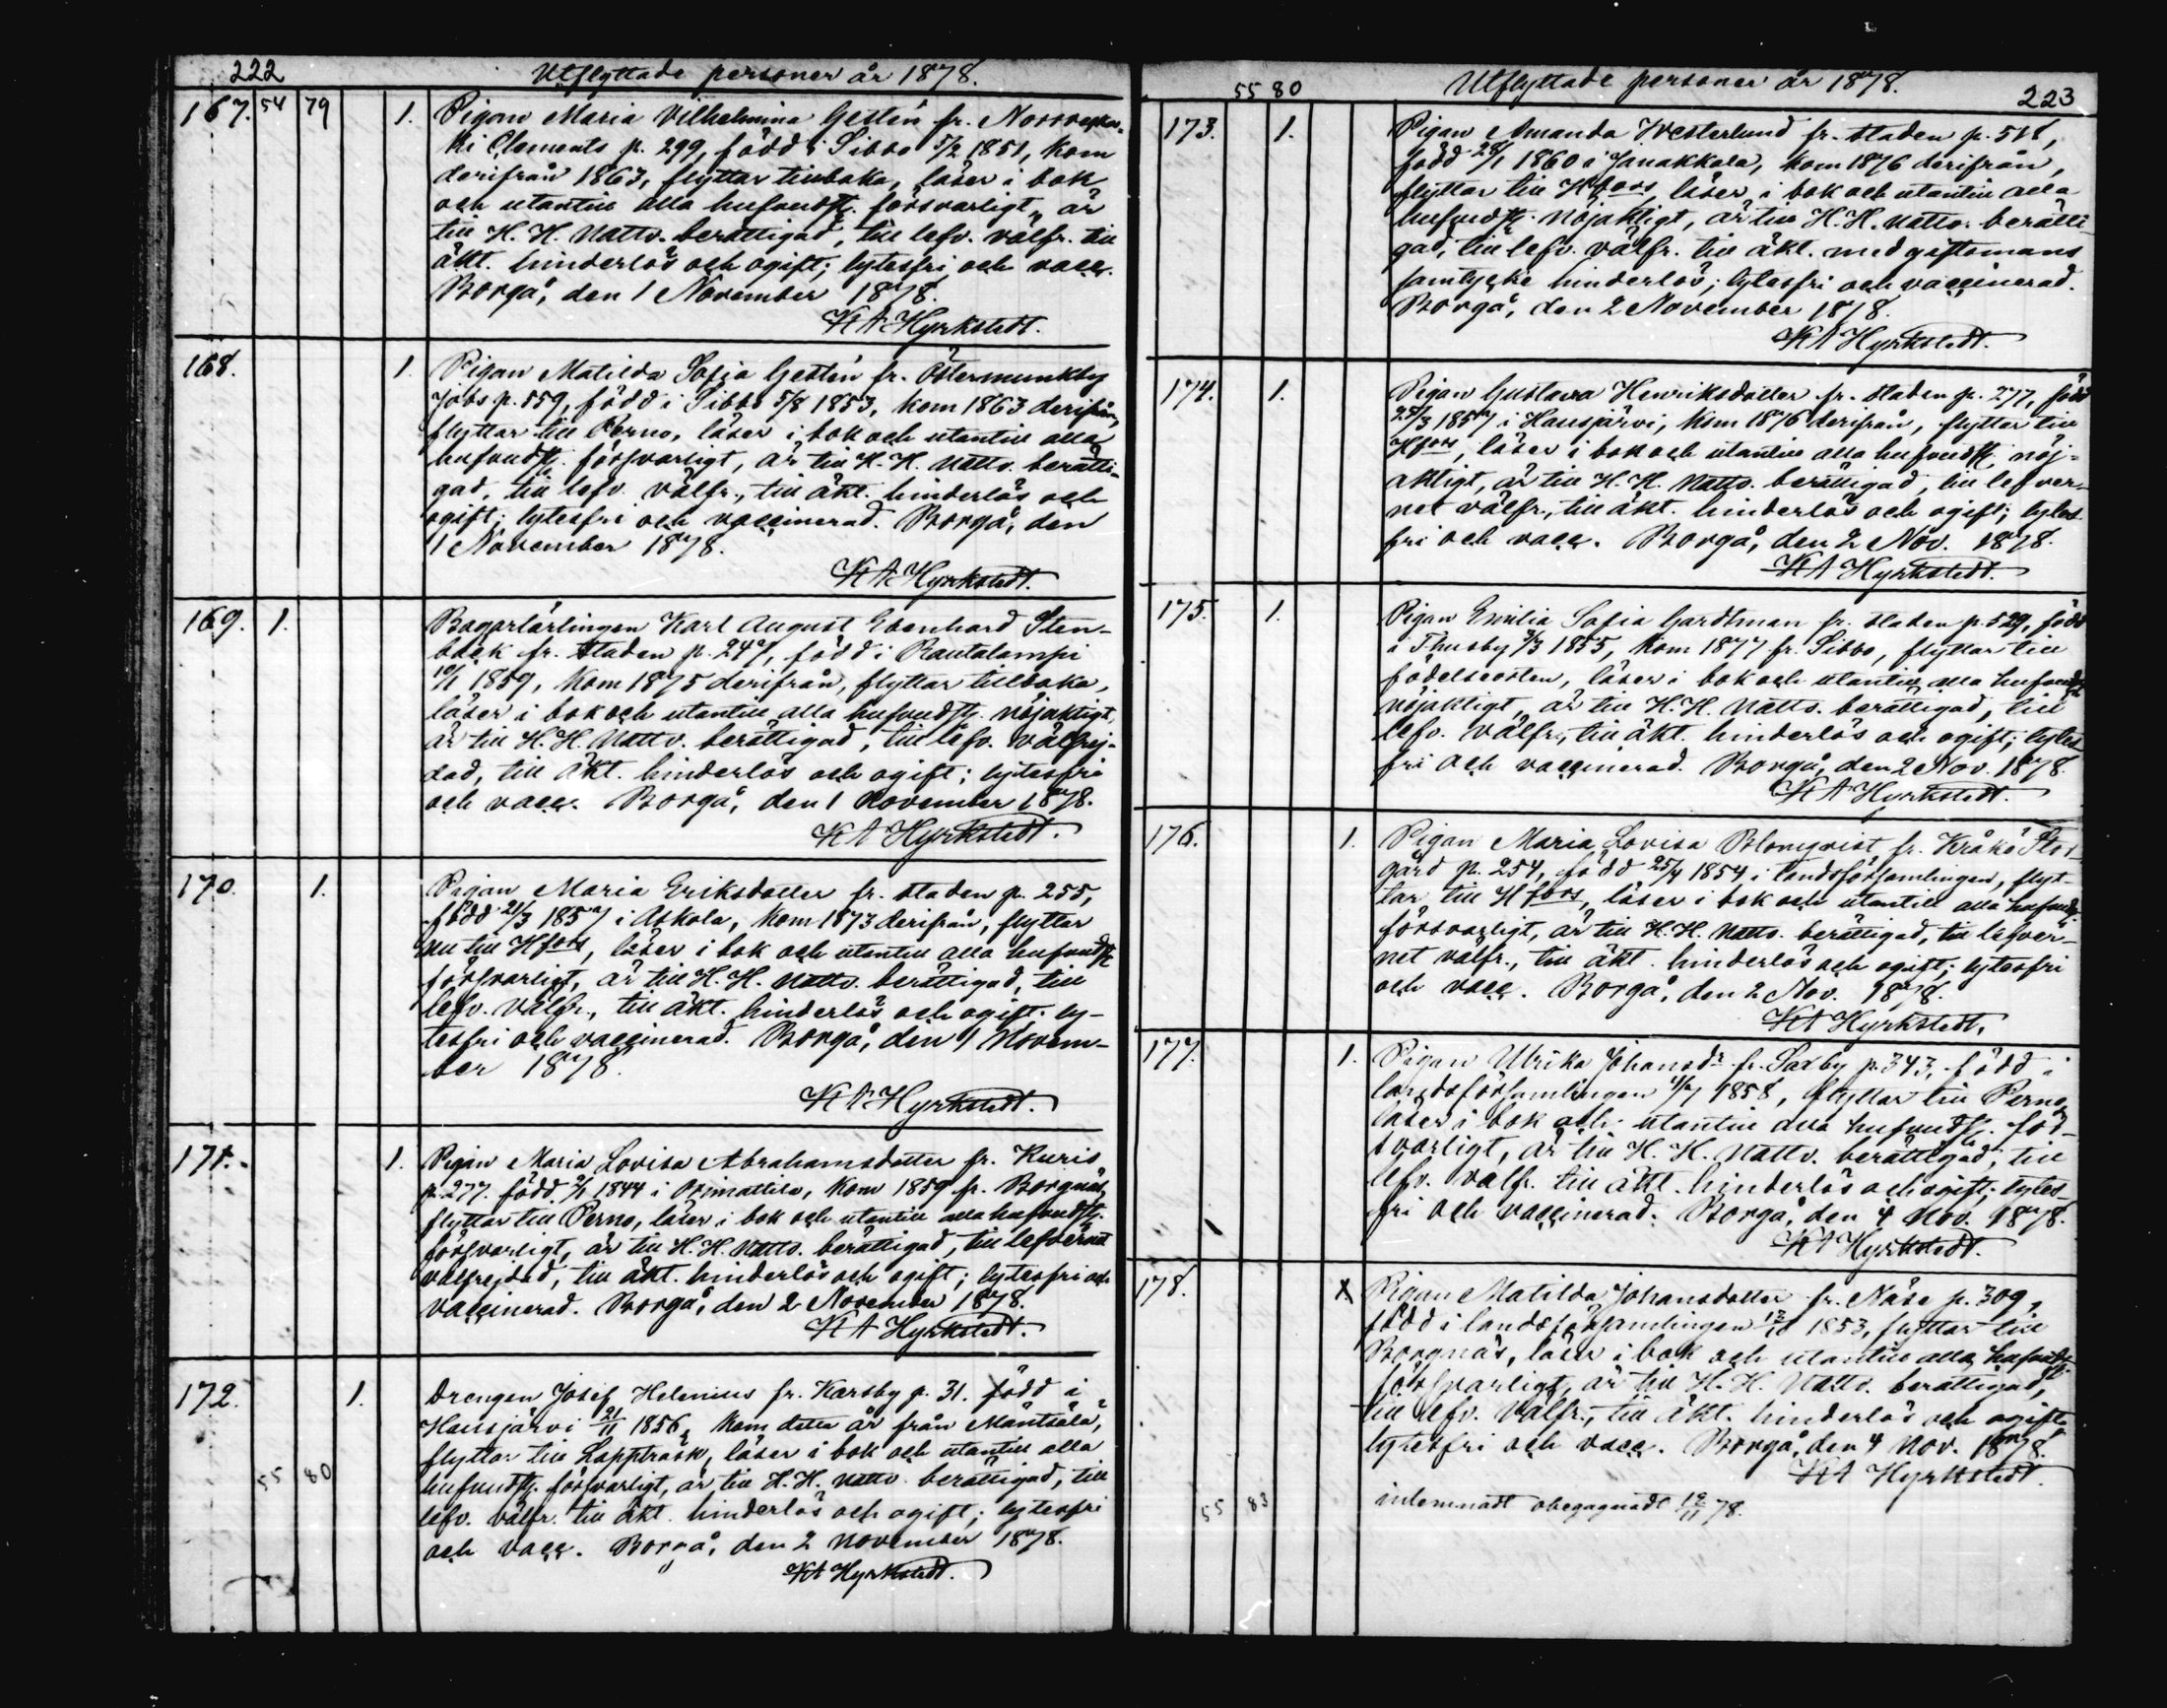 222
Utflyttade personer år 1878.
167. 54 79 1. Pigan Maria Vilhelmina Gestén fr. Norrveckos-
ki Clements p. 299, född i Sibbo 5/2 1851, kom
derifrån 1863, flyttar tillbaka, läser i bok
och utantill alla hufvudst. försvarligt, är
till H. H. nattv. berättigad, till lefv. välfr. till
äkt. hinderlös och ogift; lytesfri och vacc.
Borgå, den 1 November 1878.
KA Hyrkstedt.
168. 1. Pigan Matilda Sofia Gestén fr. Östermunkby
Jobs p. 559, född i Sibbo 5/8 1853, kom 1863 derifrån,
flyttar till Perno, läser i bok och utantill alla
hufvudst. försvarligt, är till H. H. nattv. berätti-
gad, till lefv. välfr., till äkt. hinderlös och
ogift; lytesfri och vaccinerad. Borgå, den
1 November 1878.
KA Hyrkstedt.
169. 1. Bagarlärlingen Karl August Ebenhard Sten-
bäck fr. staden p. 247, född i Rautalampi
10/1 1859, kom 1875 derifrån, flyttar tillbaka,
läser i bok och utantill alla hufvudst. nöjaktigt,
är till H. H. Nattv. berättigad, till lefv. välfrej-
dad, till äkt. hinderlös och ogift; lytesfri
och vacc. Borgå, den 1 November 1878.
KA Hyrkstedt.
170. 1. Pigan Maria Eriksdotter fr. staden p. 255,
född 21/3 1857 i Askola, kom 1873 derifrån, flyttar
nu till Hfors, läser i bok och utantill alla hufvudst.
försvarligt, är till H. H. nattv. berättigad, till
lefv. välfr., till äkt. hinderlös och ogift; ly-
tesfri och vaccinerad. Borgå, den 1 Novem-
ber 1878.
KA Hyrkstedt.
171. 1. Pigan Maria Lovisa Abrahamsdotter fr. Kuris
p. 277. född 2/1 1844 i Orimattila, kom 1859 fr. Borgnäs,
flyttar till Perno, läser i bok och utantill alla hufvudst.
försvarligt, är till H. H. nattv. berättigad, till lefvernet
välfrejdad, till äkt. hinderlös och ogift; lytesfri och
vaccinerad. Borgå, den 2 November 1878.
KA Hyrkstedt.
172. 1. Drengen Josef Helenius fr. Karsby p. 31. född i
Hausjärvi 21/11 1856, kom detta år från Mäntsälä,
flyttar till Lappträsk, läser i bok och utantill alla
55 80 hufvudst. försvarligt, är till H. H. nattv. berättigad, till
lefv. välfr. till äkt. hinderlös och ogift; lytesfri
och vacc. Borgå, den 2 November 1878.
KA Hyrkstedt.
55 80 Utflyttade personer år 1878.
223
173. 1. Pigan Amanda Westerlund fr. staden p. 511,
född 28/1 1860 i Janakkala, kom 1876 derifrån,
flyttar till Hfors, läser i bok och utantill alla
hufvudst. nöjaktigt, är till H. H. nattv. berätti-
gad, till lefv. välfr. till äkt. med giftomans
samtycke hinderlös; lytesfri och vaccinerad.
Borgå, den 2 November 1878.
KA Hyrkstedt.
174. 1. Pigan Gustava Henriksdotter fr. staden p. 277, född
25/3 1857 i Hausjärvi, kom 1876 derifrån, flyttar till
Hfors, läser i bok och utantill alla hufvudst. nöj-
aktigt, är till H. H. nattv. berättigad, till lefver-
net välfr., till äkt. hinderlös och ogift; lytes-
fri och vacc. Borgå, den 2 Nov. 1878.
KA Hyrkstedt.
175. 1. Pigan Emilia Sofia Gardtman fr. staden p. 529, född
i Thusby 3/3 1855, kom 1877 fr. Sibbo, flyttar till
födelseorten, läser i bok och utantill alla hufvudst.
nöjaktigt, är till H. H. nattv. berättigad, till
lefv. välfr., till äkt. hinderlös och ogift; lytes
fri och vaccinerad. Borgå, den 2 Nov. 1878.
KA Hyrkstedt.
176. 1. Pigan Maria Lovisa Blomqvist fr. Kråkö Stor-
gård p. 254, född 25/4 1854 i landsförsamlingen, flyt-
tar till Hfors, läser i bok och utantill alla hufvudst.
försvarligt, är till H. H. nattv. berättigad, till lefver-
net välfr., till äkt. hinderlös och ogift; lytesfri
och vacc. Borgå, den 2 Nov. 1878.
KA Hyrkstedt.
177. 1. Pigan Ulrika Johansdr fr. Saxby p. 343, född i
landsförsamlingen 1858, flyttar till Perno,
läser i bok och utantill alla hufvudst. för-
svarligt, är till H. H. Nattv. berättigad, till
lefv. välfr. till äkt. hinderlös och ogift; lytes-
fri och vaccinerad. Borgå, den 4 Nov. 1878.
KA Hyrkstedt.
178. X Pigan Matilda Johansdotter fr. Näse p. 309,
född i landsförsamlingen 1853, flyttar till
Borgnäs, läser i bok och utantill alla hufvudst.
försvarligt, är till H. H. Nattv. berättigad,
till lefv. välfr., till äkt. hinderlös och ogift,
lytesfri och vacc. Borgå, den 4 Nov. 1878.
KA Hyrkstedt.
55 83 inlemnadt obegagnadt 19/11 78.